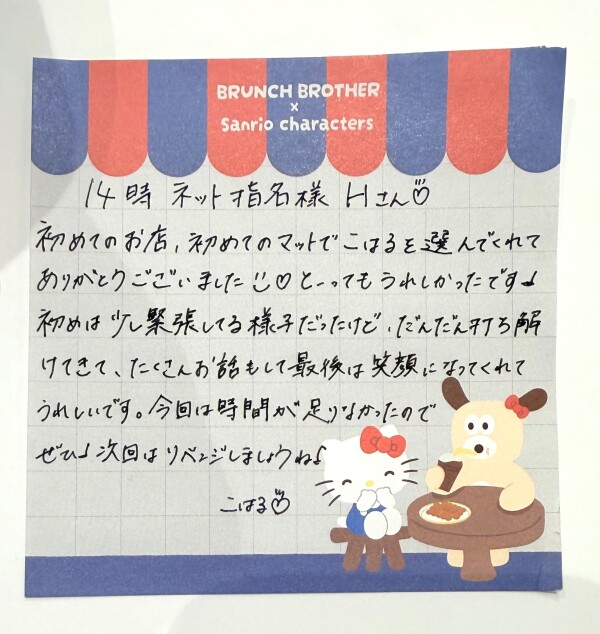 BRUNCH BROTHER
×
Sanrio characters
14時 ネット指名様 Hさん♡
初めてのお店、初めてのマットでこはるを選んでくれて
ありがとうございました☺♡とーってもうれしかったです♪
初めは少し緊張してる様子だったけど、だんだん打ち解
けてきて、たくさんお話もして最後は笑顔になってくれて
うれしいです。今回は時間が足りなかったので
ぜひ♪次回はリベンジしましょうね♪
こはる♡